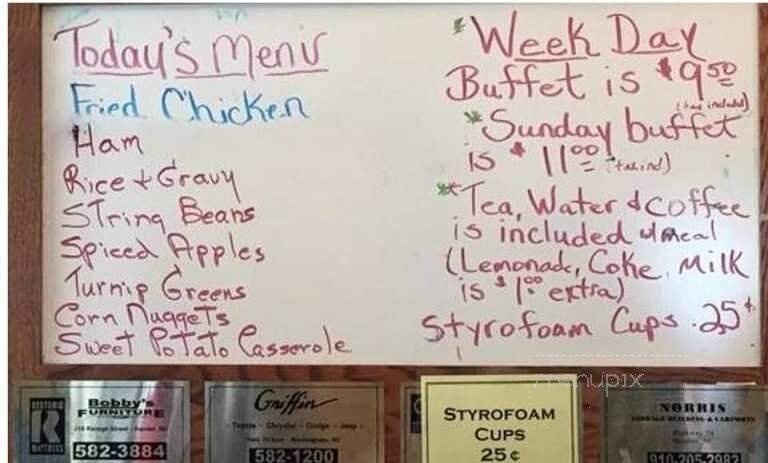 Today's Menu
Fried Chicken
Ham
Rice + Gravy
String Beans
Spiced Apples
Turnip Greens
Corn Nuggets
Sweet Potato Casserole
* Week Day
Buffet is $9.50
(tax included)
* Sunday buffet
is $11.00 (tax incl)
* Tea, Water & coffee
is included w/meal
(Lemonade, Coke, Milk
is $1.00 extra)
Styrofoam Cups .25¢
menupix
R
Bobby's
FURNITURE
582-3884
Griffin
Toyota - Chrysler - Dodge - Jeep
582-1200
STYROFOAM
CUPS
25¢
NORRIS
910-205-2982